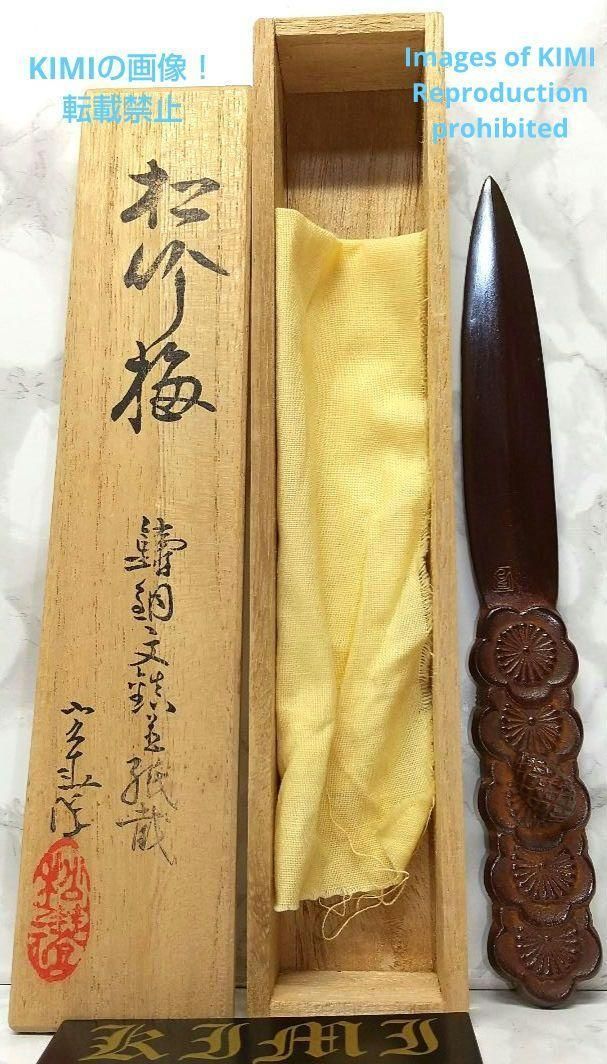 KIMIの画像！
転載禁止
Images of KIMI
Reproduction
prohibited
松竹梅
鋳銅文鎮並紙截
KIMI